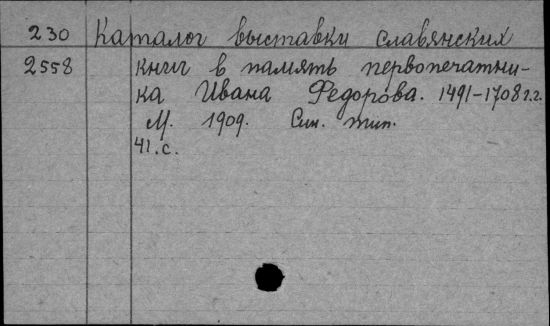 230 Каталог выставки славянских
2558 книг в память первопечатни-
ка Ивана Федорова. 1491-1708 г.г.
М. 1909. Син. тип.
41. с.